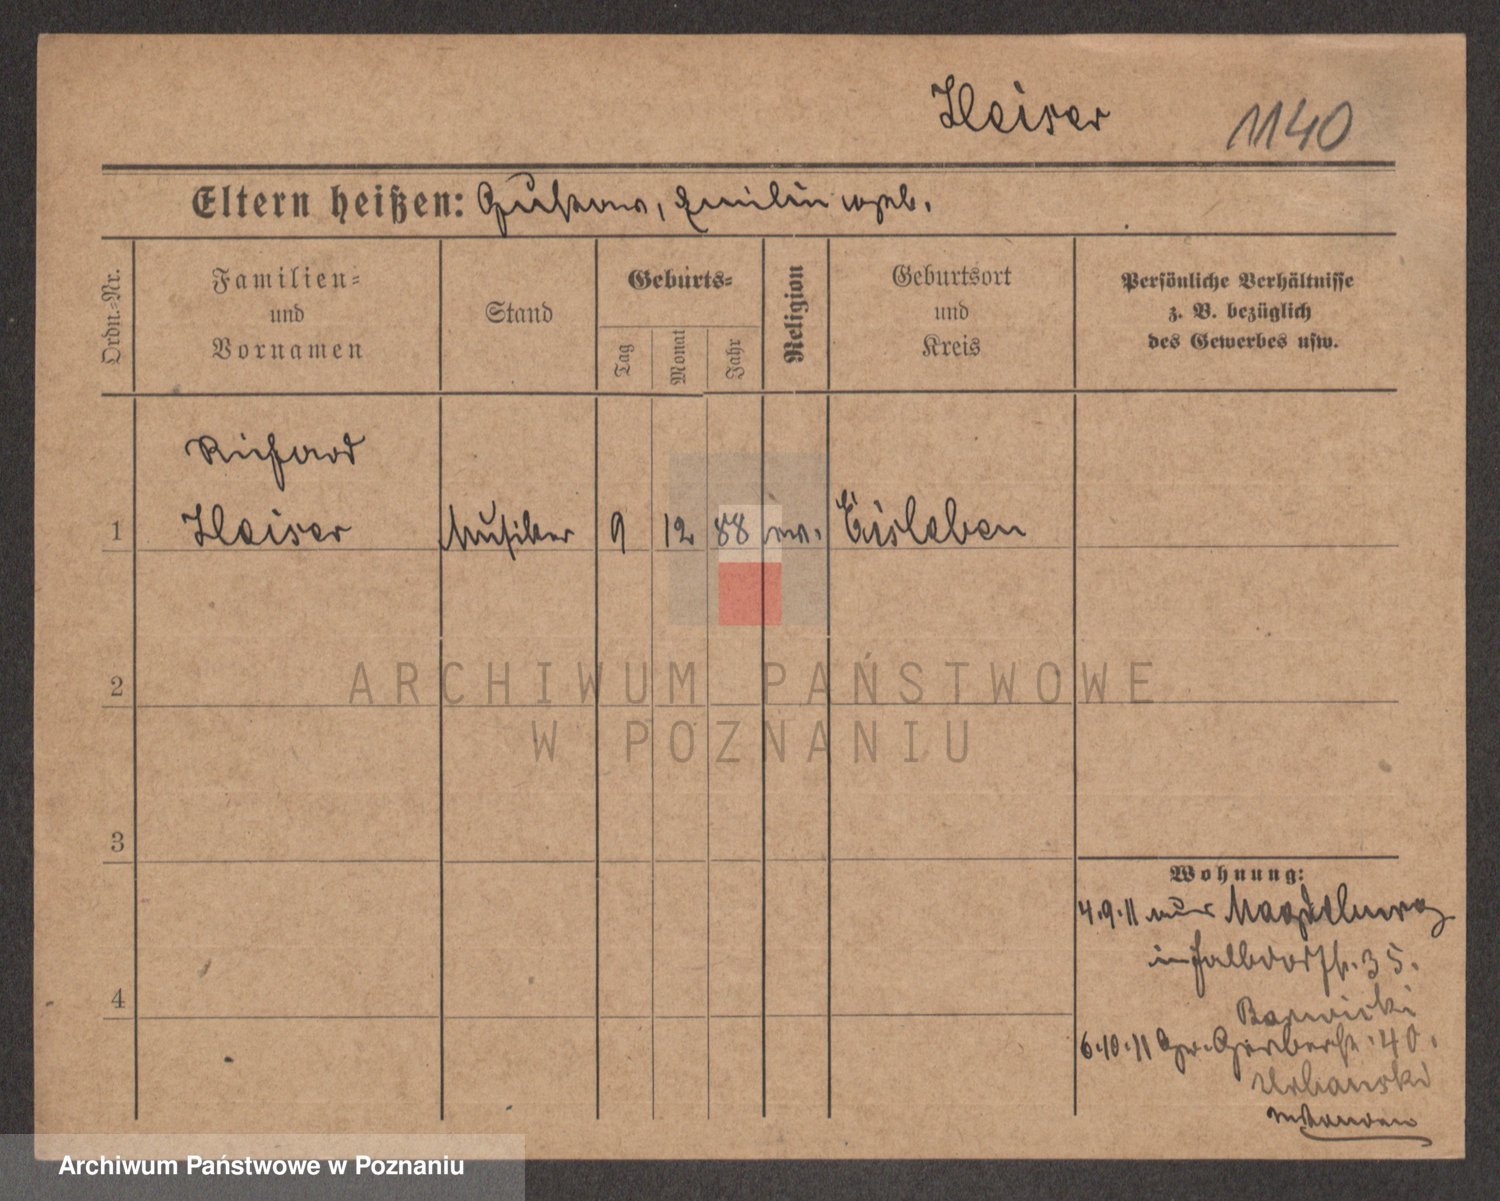 Heiser 1140
Eltern heißen: Gustav, Emilie geb.
Ordn.-Nr.
Familien-
und
Vornamen
Stand
Geburts-
Tag
Monat
Jahr
Religion
Geburtsort
und
Kreis
Persönliche Verhältnisse
z. B. bezüglich
des Gewerbes usw.
Richard
1 Heiser Musiker 9 12 88 ev. Eisleben
2
3
4
Wohnung:
4.9.11 aus Magdeburg
35.
6.10.11 Gr. Gerberstr. 40.
Urbanski
ARCHIWUM PAŃSTWOWE
W POZNANIU
Archiwum Państwowe w Poznaniu